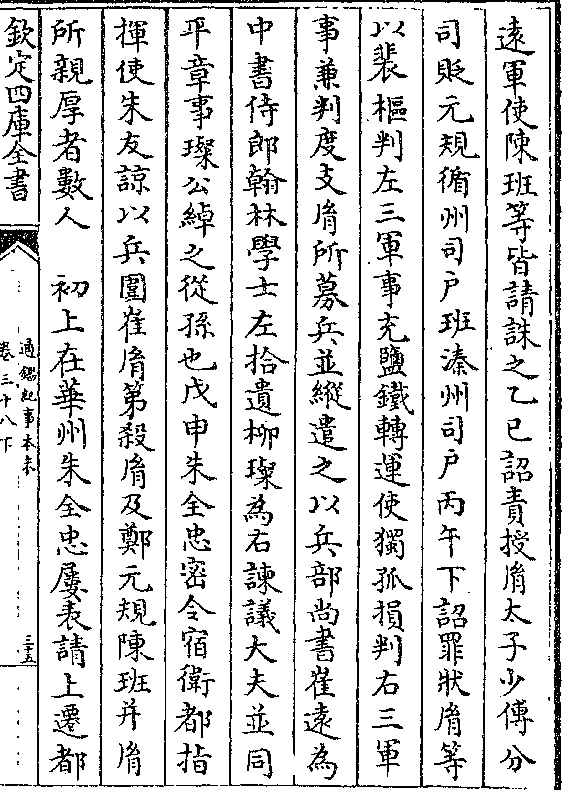 遠軍使陳班等皆請誅之乙巳詔責授𦙍太子少傅分
司貶元規循州司户班溱州司户丙午下詔罪狀𦙍等
以裴樞判左三軍事充鹽鐵轉運使獨孤損判右三軍
事兼判度支𦙍所募兵並縱遣之以兵部尚書崔遠為
中書侍郎翰林學士左拾遺柳璨為右諫議大夫並同
平章事璨公綽之從孫也戊申朱全忠密令宿衛都指
揮使朱友諒以兵圍崔𦙍第殺𦙍及鄭元規陳班并𦙍
所親厚者數人　初上在華州朱全忠屢表請上遷都
欽定四庫全書
通鑑紀事本末
卷三十八下
三十五